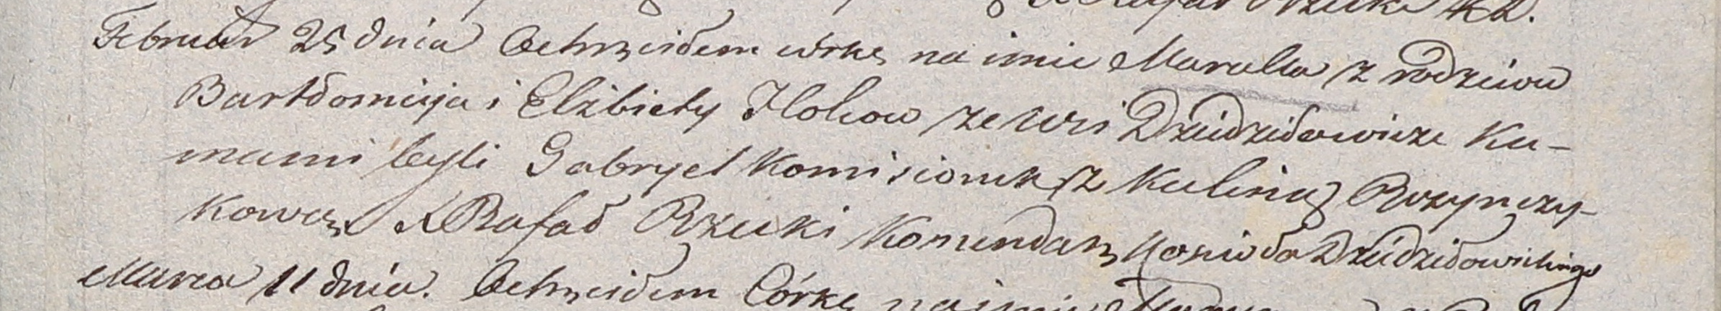 Rafał Rzucki KK.
Februar 25 dnia Ochrzciłem córkę na imie Maralla z rodziców
Bartłomieja i Elżbiety Ilolow ze wsi Dziedziłowicze Ku-
mami byli Gabryel Komisionek z Kuliną Rozynczy-
kową X Rafał Rzucki Komendarz Kosioła Dziedziłowickiego
Marca 11 dnia. Ochrzciłem Córkę na imie